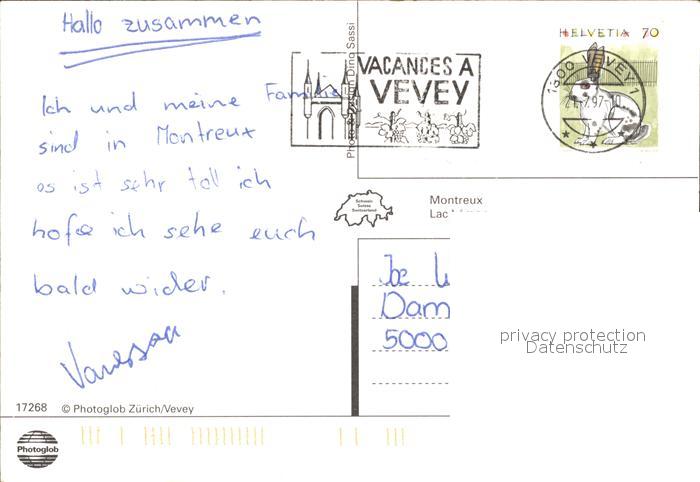 Hallo zusammen
Ich und meine Familie
sind in Montreux
es ist sehr toll ich
hofe ich sehe euch
bald wider.
Vanessa
17268 © Photoglob Zürich/Vevey
Photoglob
Dino Sassi
VACANCES A
VEVEY
HELVETIA 70
1800 VEVEY 1
Schweiz
Suisse
Switzerland
Montreux
Lac
Dam
5000
privacy protection
Datenschutz